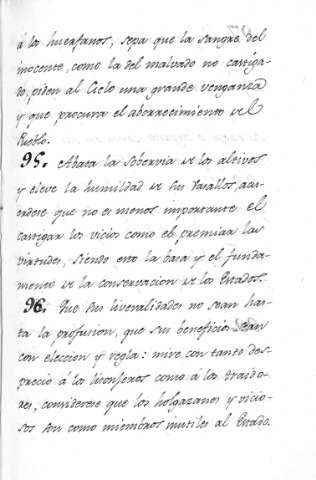 á los huerfanos, sepa que la sangre del
inocente, como la del malvado no castiga-
do, piden al Cielo una grande venganza
y que procura el aborrecimiento del
Pueblo.
95. Abata la sobervia de los altivos
y eleve la humildad de sus Vasallos, acu-
erdese que no es menos importante el
castigar los vicios como el premiar las
virtudes, siendo esto la basa y el funda-
mento de la conservacion de los Estados.
96. Que sus liveralidades no sean has-
ta la profusion, que sus beneficios sean
con eleccion y regla: mire con tanto des-
precio á los lisonjeros como á los traido-
res, considerese que los holgazanes y vicio-
sos son como miembros inutiles al Estado.